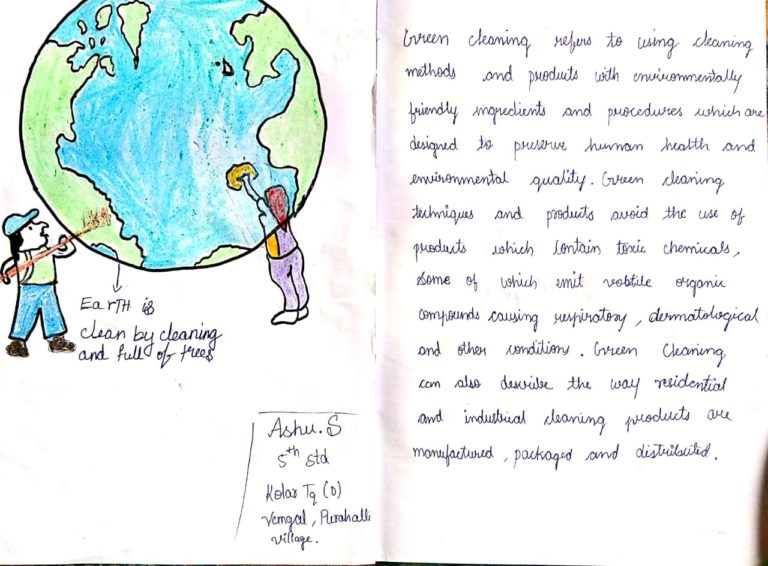 Earth is
clean by cleaning
and full of trees
Ashu.S
5th std
Kolar Tq (D)
Vemgal, Purahalli
village.
Green cleaning refers to using cleaning
methods and products with environmentally
friendly ingredients and procedures which are
designed to preserve human health and
environmental quality. Green cleaning
techniques and products avoid the use of
products which contain toxic chemicals,
some of which emit volatile organic
compounds causing respiratory, dermatological
and other conditions. Green Cleaning
can also describe the way residential
and industrical cleaning products are
manufactured, packaged and distributed.